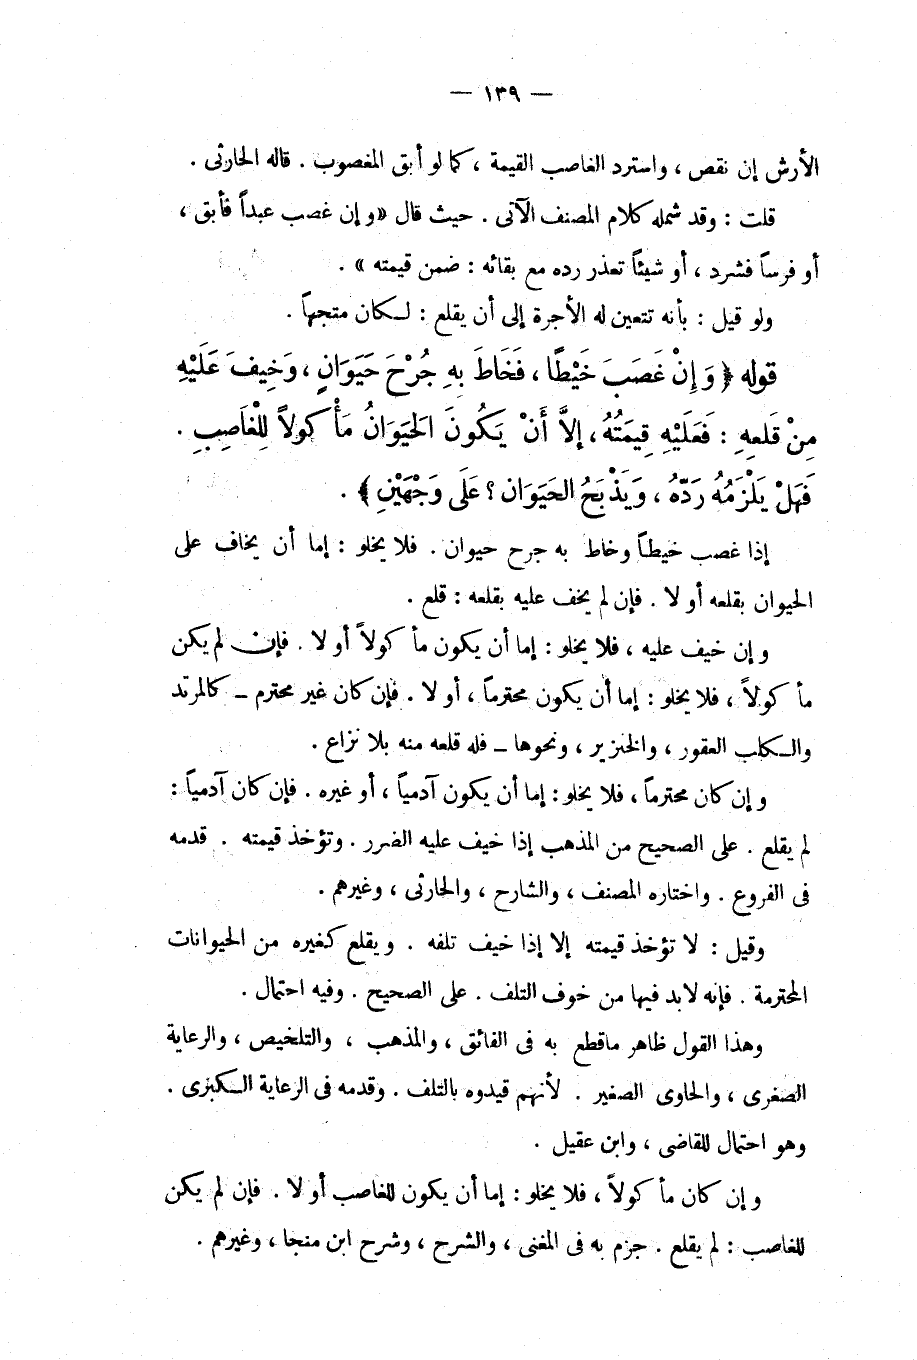 — ١٣٩ —
الأرش إن نقص ، واسترد الغاصب القيمة ، كما لو أبق المغصوب . قاله الحارثى .
قلت : وقد شمله كلام المصنف الآتى . حيث قال «وإن غصب عبداً فأبق ،
أو فرساً فشرد ، أو شيئاً تعذر رده مع بقائه : ضمن قيمته » .
ولو قيل : بأنه تتعين له الأجرة إلى أن يقلع : لـكان متجهاً .
قوله ﴿ وَإِنْ غَصَبَ خَيْطًا ، فَخَاطَ بِهِ جُرْحَ حَيَوَانٍ ، وَخِيفَ عَلَيْهِ
مِنْ قَلعِهِ : فَعَلَيْهِ قِيمَتُهُ ، إلاَّ أَنْ يَكُونَ الحَيَوَانُ مَأْكولاً لِلْغَاصِبِ .
فَهَلْ يَلْزَمُهُ رَدّهُ ، وَيَذْبَحُ الحَيَوَان ؟ عَلَى وَجْهَيْنِ ﴾ .
إذا غصب خيطاً وخاط به جرح حيوان . فلا يخلو : إما أن يخاف على
الحيوان بقلعه أو لا . فإن لم يخف عليه بقلعه : قلع .
وإن خيف عليه ، فلا يخلو : إما أن يكون مأكولاً أو لا . فإن لم يكن
مأكولاً ، فلا يخلو : إما أن يكون محترماً ، أو لا . فإن كان غير محترم ــ كالمرتد
والـكلب العقور ، والخنزير ، ونحوها ــ فله قلعه منه بلا نزاع .
وإن كان محترماً ، فلا يخلو : إما أن يكون آدمياً ، أو غيره . فإن كان آدمياً :
لم يقلع . على الصحيح من المذهب إذا خيف عليه الضرر . وتؤخذ قيمته . قدمه
فى الفروع . واختاره المصنف ، والشارح ، والحارثى ، وغيرهم .
وقيل : لا تؤخذ قيمته إلا إذا خيف تلفه . ويقلع كغيره من الحيوانات
المحترمة . فإنه لابد فيها من خوف التلف . على الصحيح . وفيه احتمال .
وهذا القول ظاهر ماقطع به فى الفائق ، والمذهب ، والتلخيص ، والرعاية
الصغرى ، والحاوى الصغير . لأنهم قيدوه بالتلف . وقدمه فى الرعاية الـكبرى .
وهو احتمال للقاضى ، وابن عقيل .
وإن كان مأكولاً ، فلا يخلو : إما أن يكون للغاصب أو لا . فإن لم يكن
للغاصب : لم يقلع . جزم به فى المغنى ، والشرح ، وشرح ابن منجا ، وغيرهم .